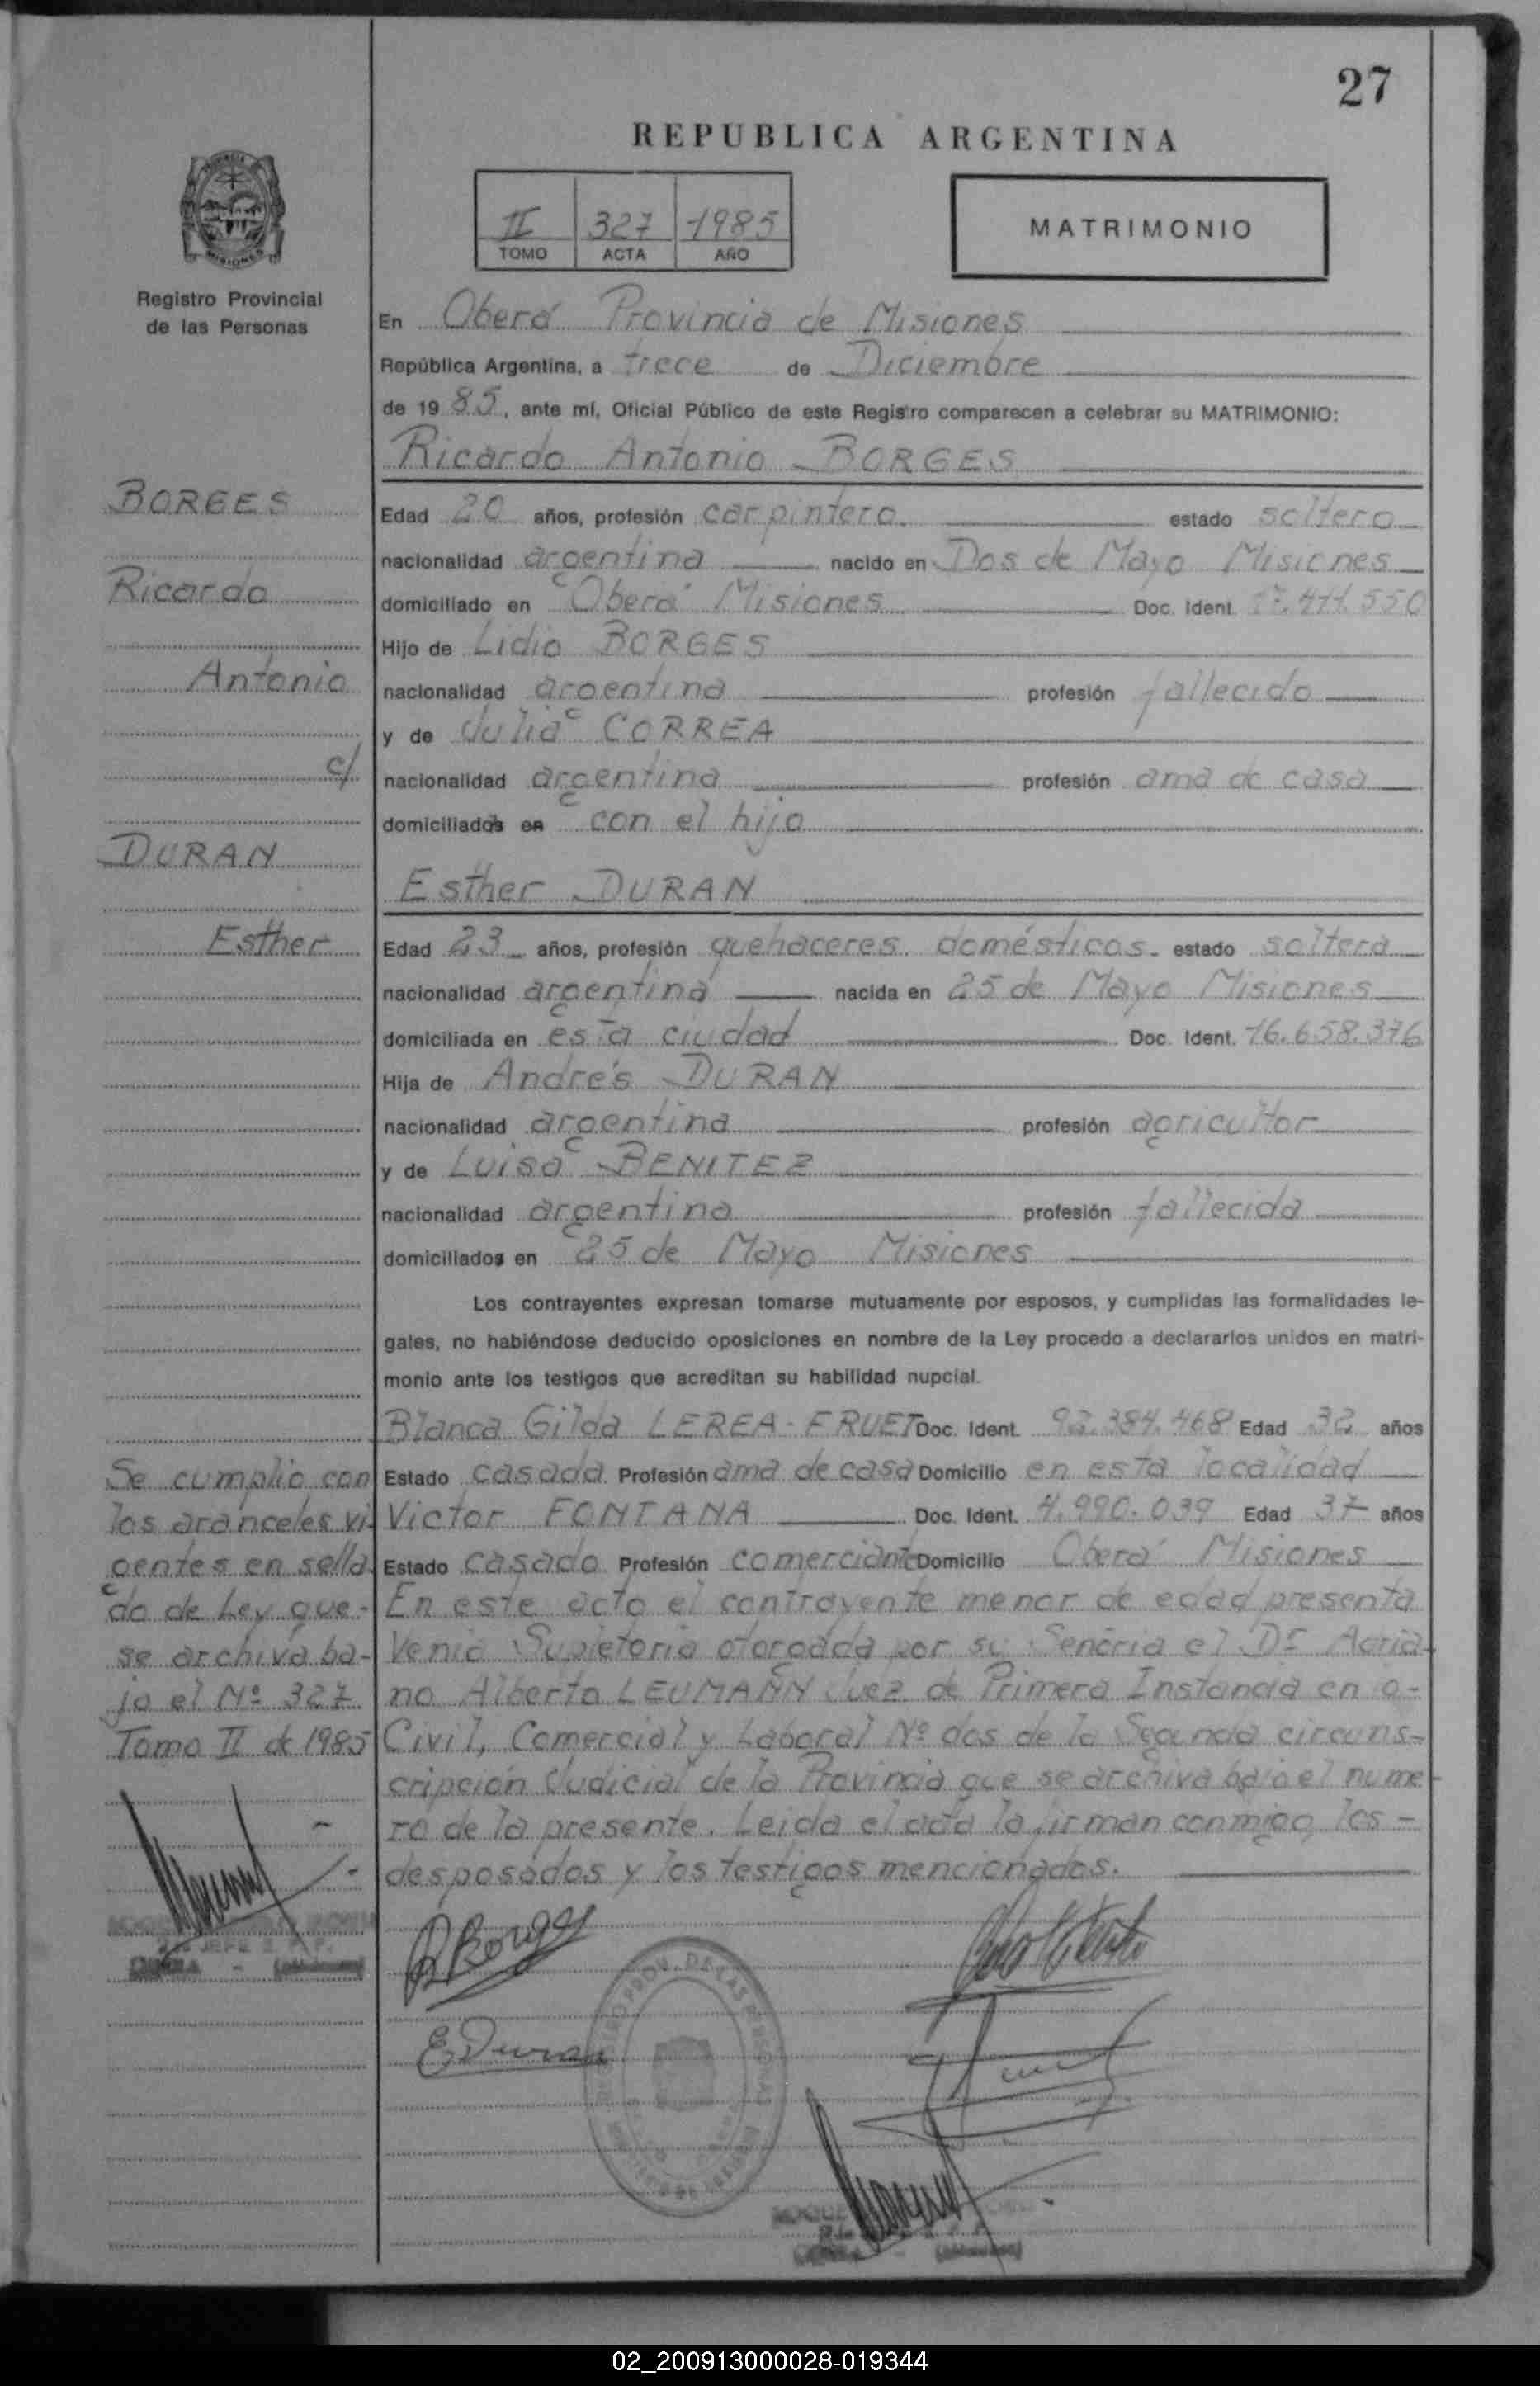 27
REPUBLICA ARGENTINA
II 327 1985
TOMO ACTA AÑO
MATRIMONIO
Registro Provincial
de las Personas
En Oberá Provincia de Misiones
República Argentina, a trece de Diciembre
de 19 85, ante mí, Oficial Público de este Registro comparecen a celebrar su MATRIMONIO:
Ricardo Antonio BORGES
Edad 20 años, profesión carpintero estado soltero
nacionalidad argentina nacido en Dos de Mayo Misiones
domiciliado en Oberá Misiones Doc. Ident.
Hijo de Lidio BORGES
nacionalidad argentina profesión fallecido
y de Julia CORREA
nacionalidad argentina profesión ama de casa
domiciliados en con el hijo
Esther DURAN
Edad 23 años, profesión quehaceres domésticos estado soltera
nacionalidad argentina nacida en 25 de Mayo Misiones
domiciliada en esta ciudad Doc. Ident. 16.658.376
Hija de Andrés DURAN
nacionalidad argentina profesión agricultor
y de Luisa BENITEZ
nacionalidad argentina profesión fallecida
domiciliados en 25 de Mayo Misiones
Los contrayentes expresan tomarse mutuamente por esposos, y cumplidas las formalidades le-
gales, no habiéndose deducido oposiciones en nombre de la Ley procedo a declararlos unidos en matri-
monio ante los testigos que acreditan su habilidad nupcial.
Blanca Gilda LEREA-FRUET Doc. Ident. 92.384.468 Edad 32 años
Estado casada Profesión ama de casa Domicilio en esta localidad
Victor FONTANA Doc. Ident. 4.990.039 Edad 37 años
Estado casado Profesión comerciante Domicilio Oberá Misiones
En este acto el contrayente menor de edad presenta
Venia Supletoria otorgada por su Señoria el Dr Adria-
no Alberto LEUMANN Juez de Primera Instancia en o-
Civil, Comercial y Laboral Nº dos de la Segunda circuns-
cripción Judicial de la Provincia que se archiva bajo el nume-
ro de la presente. Leida el acta la firman conmigo, los -
desposados y los testigos mencionados.
BORGES
Ricardo
Antonio
c/
DURAN
Esther
Se cumplio con
los aranceles vi-
gentes en sella-
do de Ley que-
se archiva ba-
jo el Nº 327
Tomo II de 1985
R Borges
E Duran
02_200913000028-019344